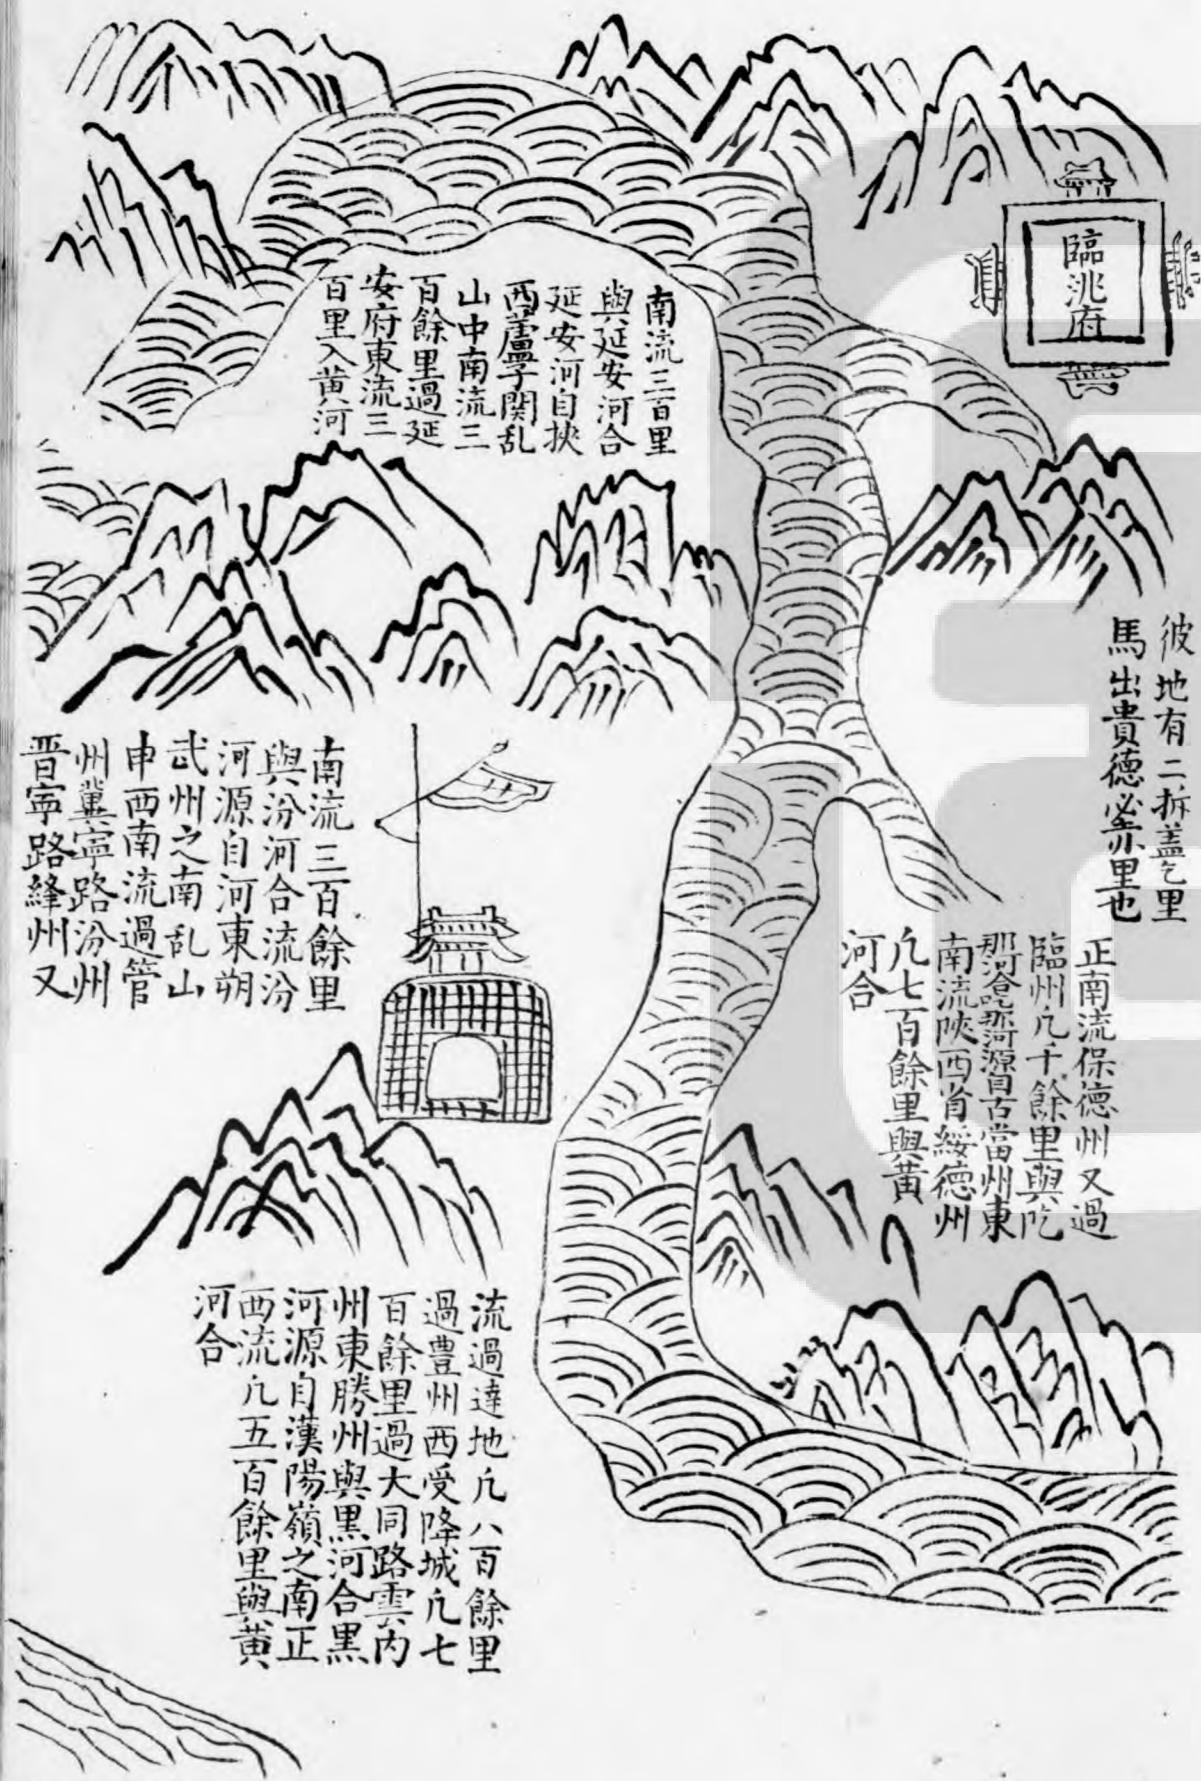 臨洮府
彼地有二拆盖乞里
馬出貴德必赤里也
正南流保德州又過
臨州凢千餘里與吃
那河合吃那河源自古當州東
南流陜西省綏德州
凢七百餘里與黄
河合
南流三百里
與延安河合
延安河自挾
西蘆子関乱
山中南流三
百餘里過延
安府東流三
百里入黄河
南流三百餘里
與汾河合流汾
河源自河東朔
武州之南乱山
申西南流過管
州冀寧路汾州
晋寧路絳州又
流過達地凢八百餘里
過豊州西受降城凢七
百餘里過大同路雲内
州東勝州與黒河合黒
河源自漢陽嶺之南正
西流凢五百餘里與黄
河合